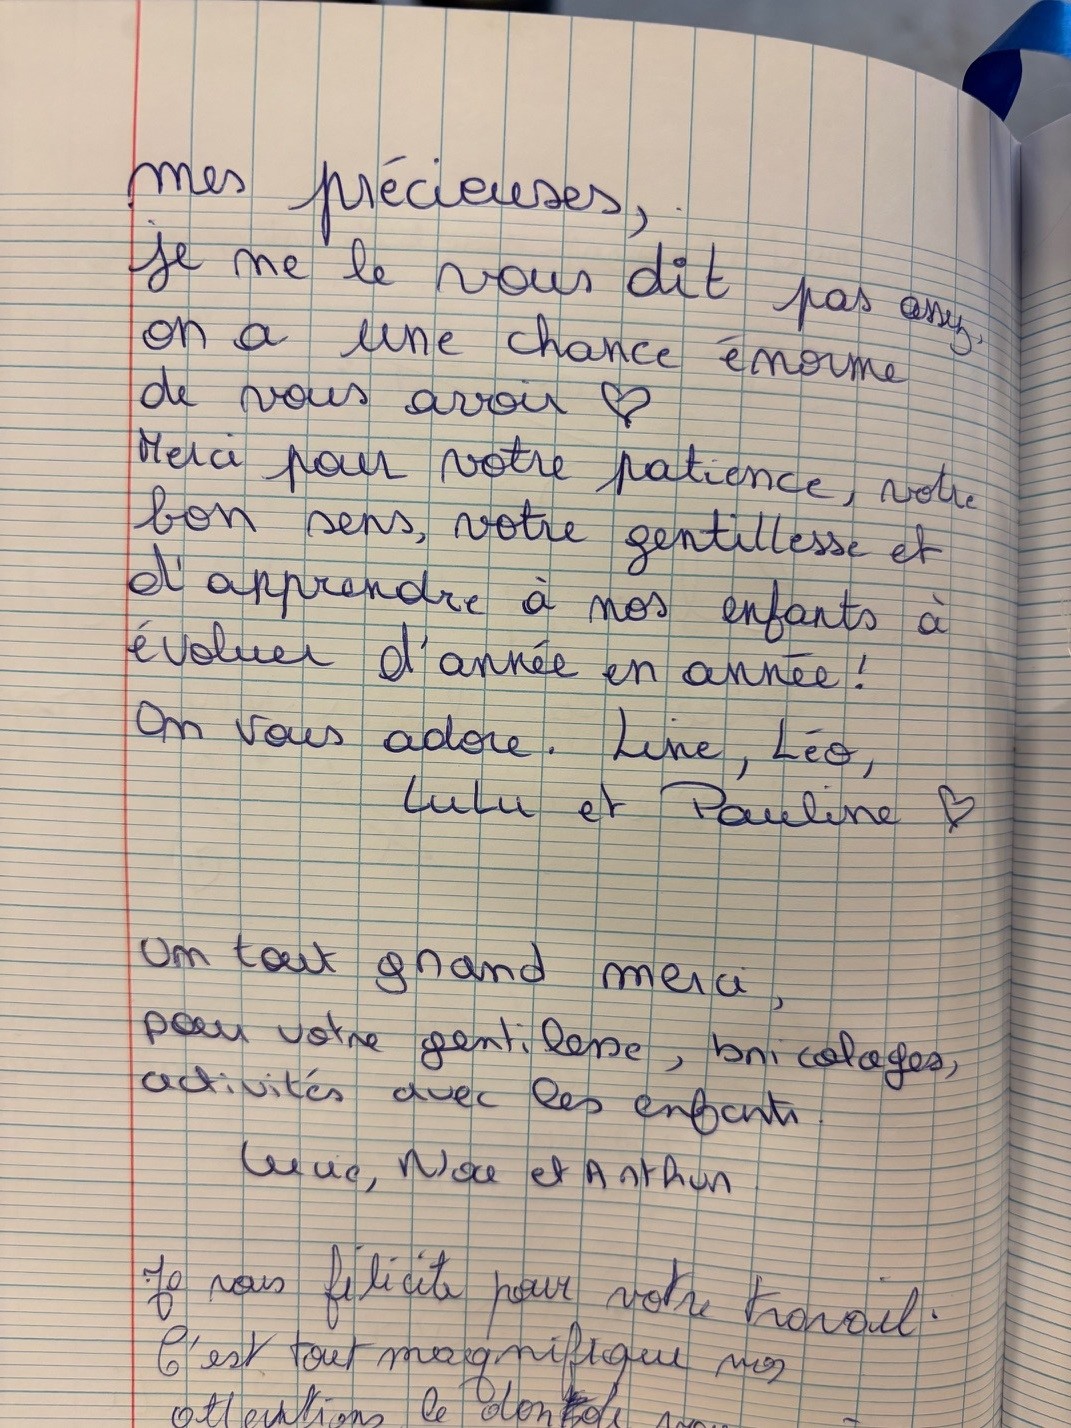 mes précieuses,
je ne le vous dit pas assez,
on a une chance énorme
de vous avoir ♡
Merci pour votre patience, votre
bon sens, votre gentillesse et
d'apprendre à nos enfants à
évoluer d'année en année !
On vous adore. Line, Léo,
Lulu et Pauline ♡
Un tout grand merci,
pour votre gentilesse, bricolages,
activités avec les enfants.
et Arthur
Je vous félicite pour votre travail.
C'est tout magnifique vos
attentions le